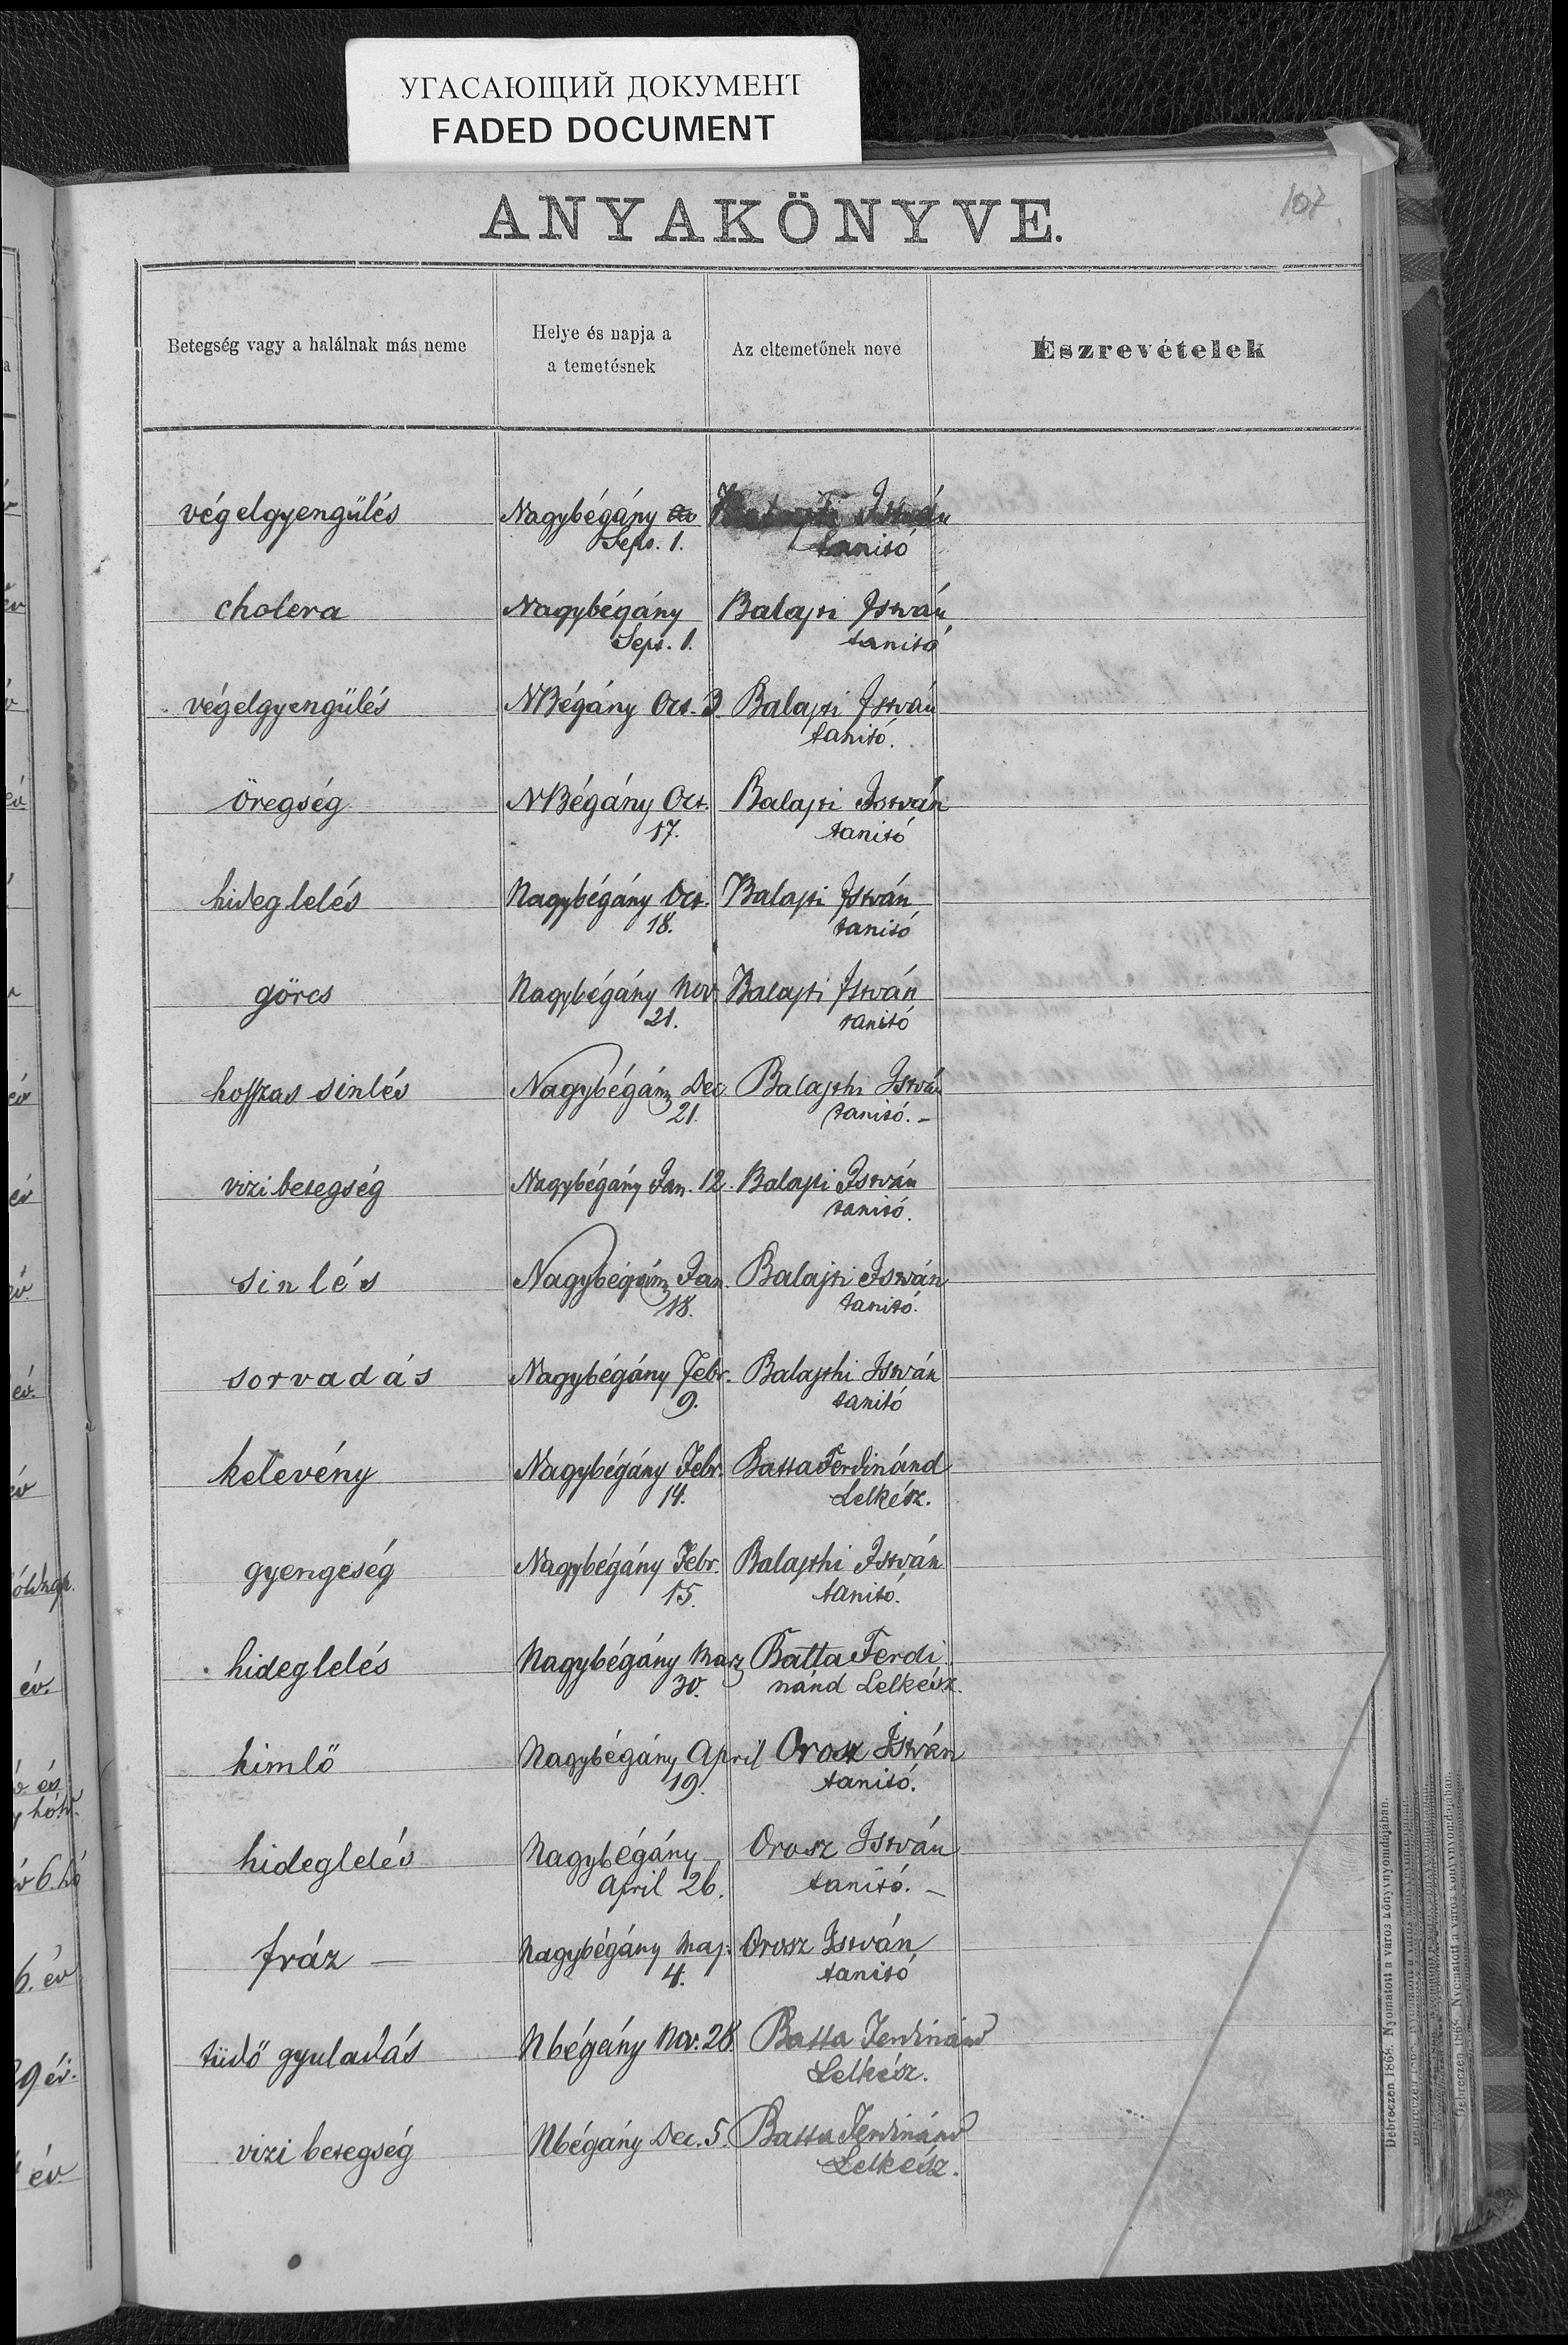 УГАСАЮЩИЙ ДОКУМЕНТ
FADED DOCUMENT
ANYAKÖNYVE.
107
Betegség vagy a halálnak más neme
Helye és napja a
a temetésnek
Az eltemetőnek neve
Észrevételek
végelgyengülés Nagybégány István
Sept. 1. tanitó
cholera Nagybégány Balajti István
Sept. 1. tanitó
végelgyengülés NBégány Oct. 3 Balajti István
tanitó.
öregség NBégány Oct. Balajti István
17. tanitó
hideglelés Nagybégány Oct. Balajti István
18. tanitó
görcs Nagybégány Nov Balajti István
21. tanitó
hosszas sinlés Nagybégány Dec Balajthi István
21. tanitó. –
vizi betegség Nagybégány Jan. 12. Balajti István
tanitó.
sinlés Nagybégány Jan. Balajti István
18. tanitó.
sorvadás Nagybégány Febr. Balajthi István
9. tanitó
kelevény Nagybégány Febr. Batta Ferdinánd
14. Lelkész.
gyengeség Nagybégány Febr. Balajthi István
15. tanitó.
hideglelés Nagybégány Marz Batta Ferdi
30. nánd Lelkész.
himlő Nagybégány April Orosz István
19. tanitó.
hideglelés Nagybégány Orosz István
April 26. tanitó. –
fráz – Nagybégány Maj. Orosz István
4. tanitó
tüdő gyuladás Nbégány Nov. 28 Batta Ferdinánd
Lelkész.
vizi betegség Nbégány Dec. 5. Batta Ferdinánd
Lelkész.
Debreczen 1868. Nyomatott a város könyvnyomdájában.